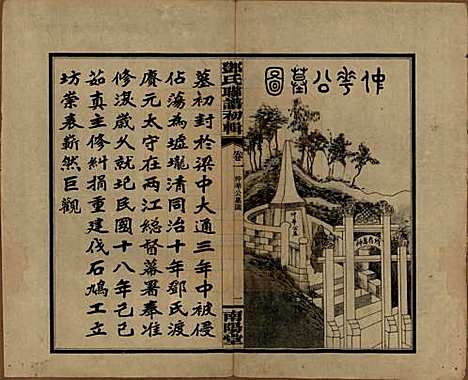 仲華公墓圖
鄧氏聯譜初輯
卷一
仲華公墓圖
南陽堂
墓初封於梁中大通三年中被侵
佔蕩為墟壠清同治十年鄧氏渡
賡元太守在两江總督幕署奉准
修復歲久就圮民國十八年己巳
茹真主修糾捐重建伐石鳩工立
坊崇表嶄然巨觀